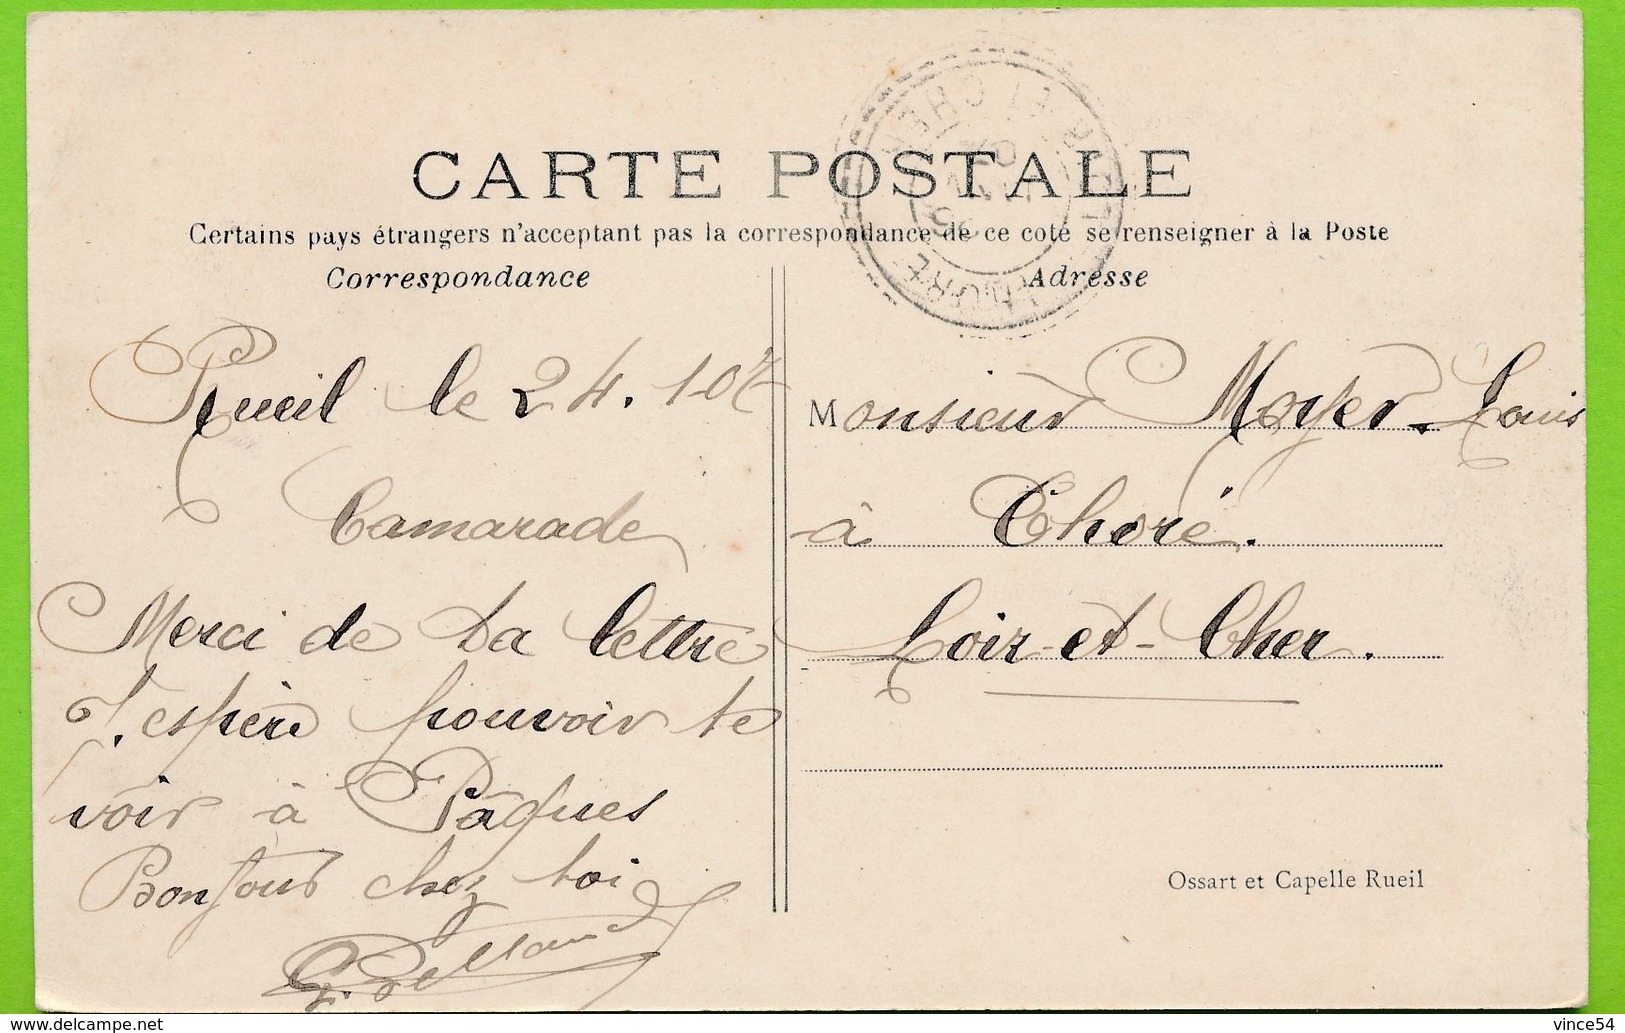 CARTE POSTALE
Certains pays étrangers n'acceptant pas la correspondance de ce coté se renseigner à la Poste
Correspondance
Adresse
Rueil le 24. 1-07
Camarade
Merci de ta lettre
J'espère pouvoir te
voir à Pâques
Bonjour chez toi
Monsieur Moyer Louis
à Thoré.
Loir-et-Cher.
Ossart et Capelle Rueil
LOIR ET CHER
www.delcampe.net
vince54